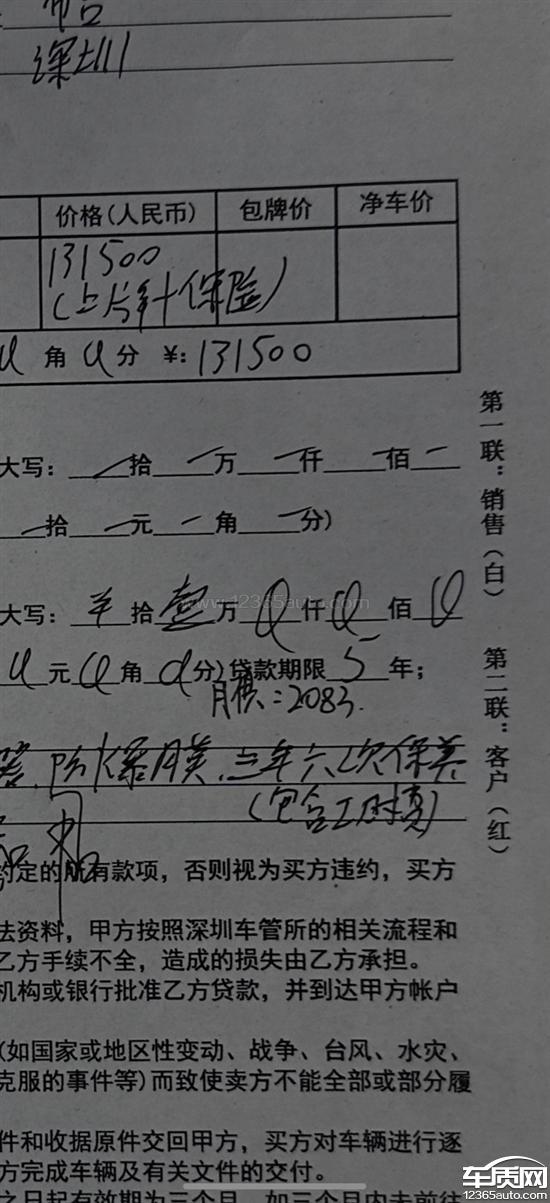 深圳
价格(人民币) 包牌价 净车价
131500
(上牌+保险)
角 分 ¥: 131500
大写: 拾 万 仟 佰
拾 元 角 分)
大写: 拾 壹 万 0 仟 0 佰 0
元 0 角 0 分) 贷款期限 5 年;
月供:2083.
膜、三年六次保养
(包含工时费)
约定的所有款项，否则视为买方违约，买方
法资料，甲方按照深圳车管所的相关流程和
乙方手续不全，造成的损失由乙方承担。
机构或银行批准乙方贷款，并到达甲方帐户
(如国家或地区性变动、战争、台风、水灾、
克服的事件等)而致使卖方不能全部或部分履
件和收据原件交回甲方，买方对车辆进行逐
方完成车辆及有关文件的交付。
之日起有效期为三个月，如三个月内未前往
第一联：销售(白)
第二联：客户(红)
www.12365auto.com
车质网
12365auto.com